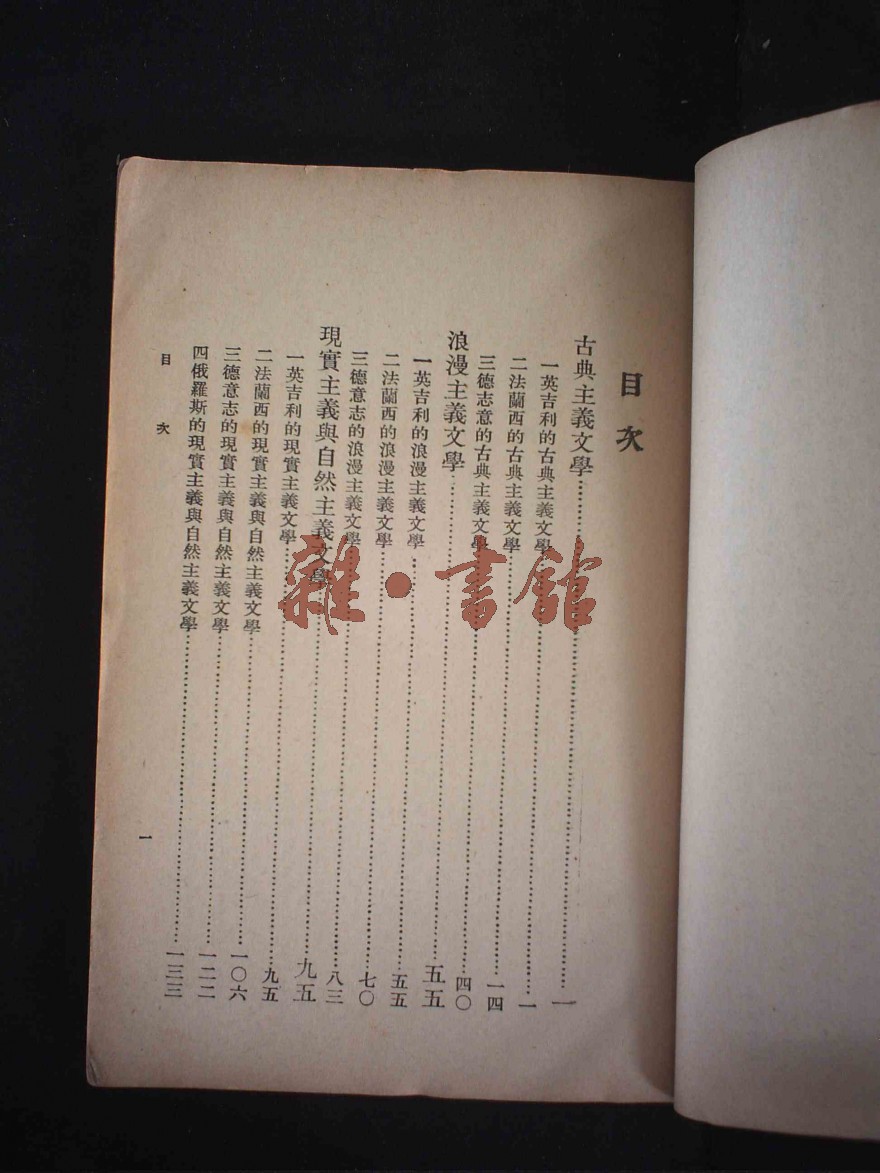 目次
古典主義文學……一
一英吉利的古典主義文學……一
二法蘭西的古典主義文學……一四
三德志意的古典主義文學……四〇
浪漫主義文學……五五
一英吉利的浪漫主義文學……五五
二法蘭西的浪漫主義文學……七〇
三德意志的浪漫主義文學……八三
現實主義與自然主義文學……九五
一英吉利的現實主義文學……九五
二法蘭西的現實主義與自然主義文學……一〇六
三德意志的現實主義與自然主義文學……一二二
四俄羅斯的現實主義與自然主義文學……一三三
目次
一
雜·書館